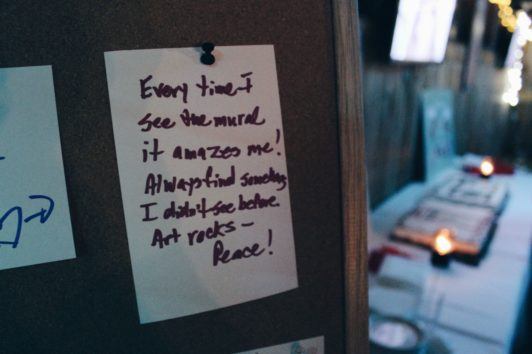 Every time I
see the mural
it amazes me!
Always find something
I didn't see before.
Art rocks —
Peace!